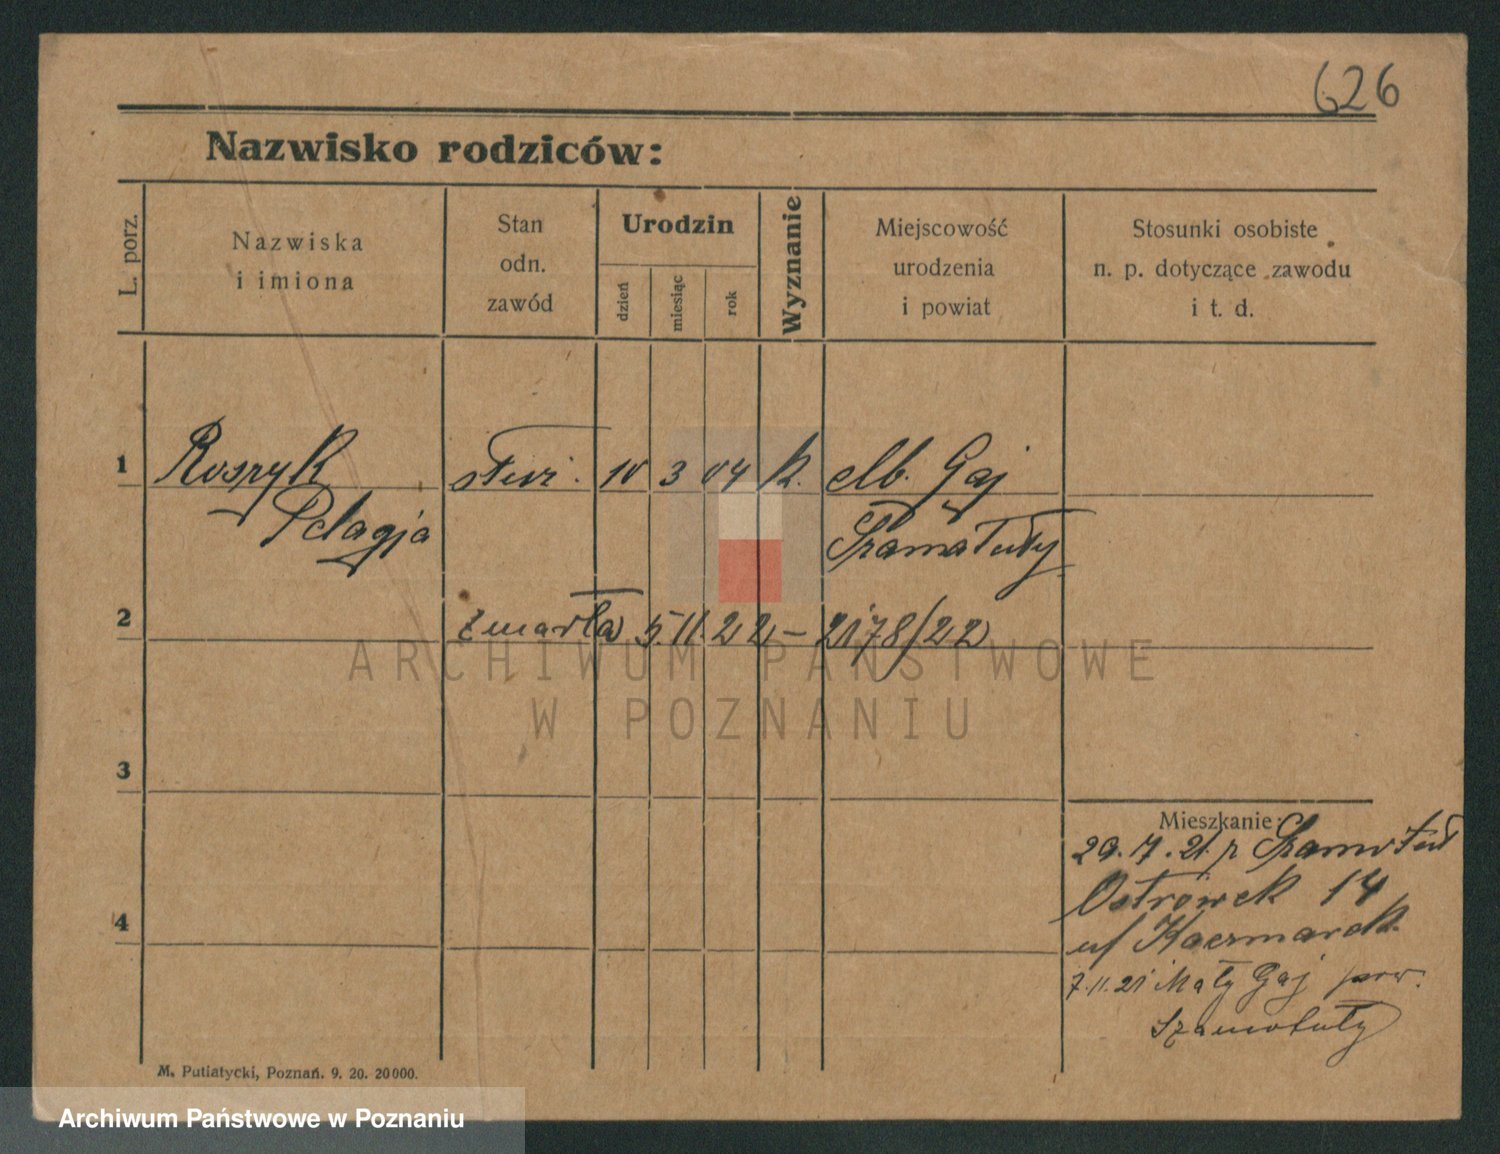 626
Nazwisko rodziców:
L. porz.
Nazwiska
i imiona
Stan
odn.
zawód
Urodzin
dzień
miesiąc
rok
Wyznanie
Miejscowość
urodzenia
i powiat
Stosunki osobiste
n. p. dotyczące zawodu
i t. d.
1
Roszyk służ. 10 3 04 k. Mł. Gaj
Pelagja Szamatuły
2
zmarła 5.11.22 - 2178/22
3
4
Mieszkanie
29.7.21 z Szamotuł
Ostrówek 14
u/ Kaczmarek
7.11.21 Mały Gaj pow.
Szamotuły
M. Putiatycki, Poznań. 9. 20. 20000.
ARCHIWUM PAŃSTWOWE
W POZNANIU
Archiwum Państwowe w Poznaniu